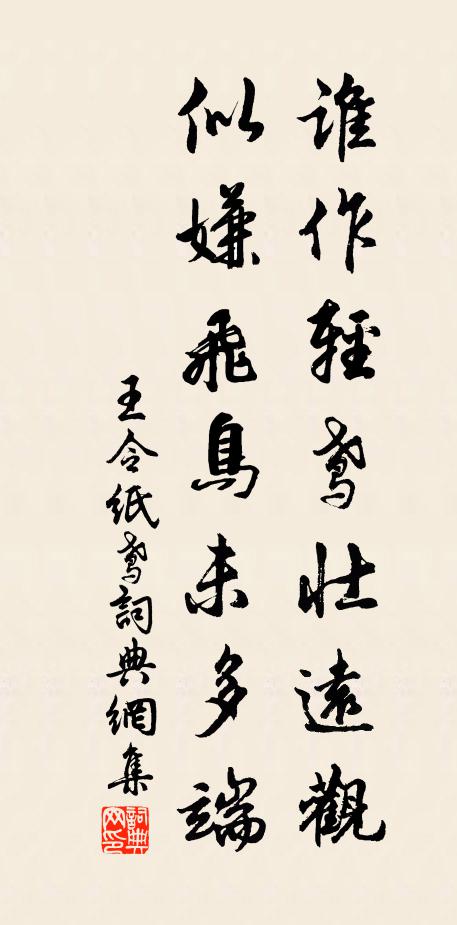 誰作輕鳶壯遠觀
似嫌飛鳥未多端
王令紙鳶詞典網集
詞典
网印